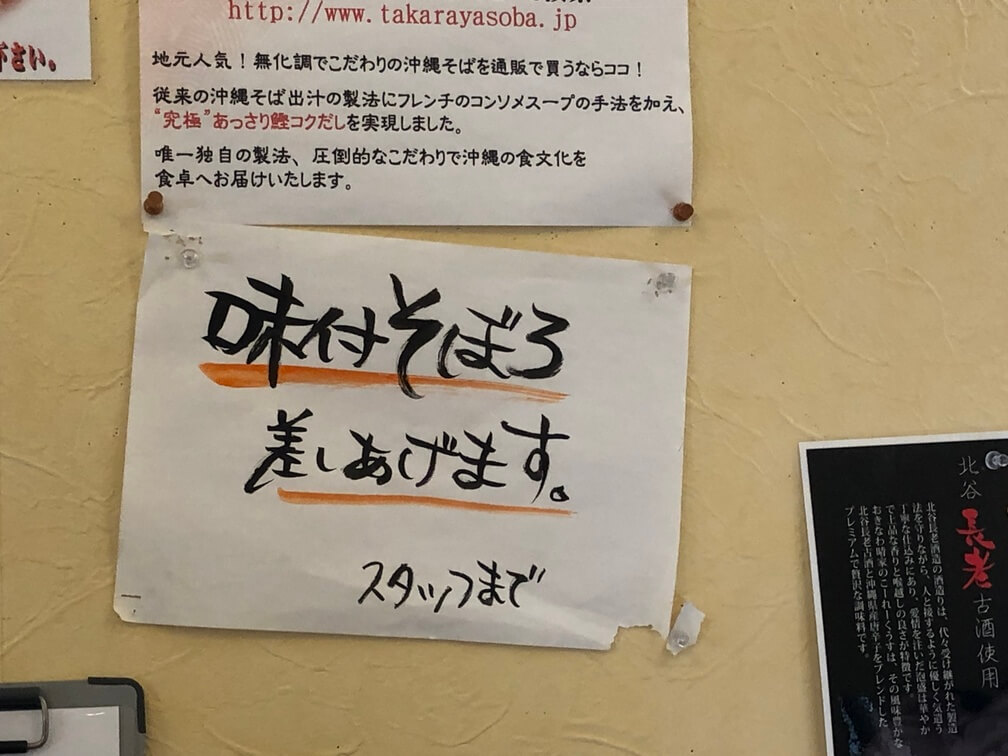 さい。
http://www.takarayasoba.jp
地元人気！無化調でこだわりの沖縄そばを通販で買うならココ！
従来の沖縄そば出汁の製法にフレンチのコンソメスープの手法を加え、
“究極”あっさり鰹コクだしを実現しました。
唯一独自の製法、圧倒的なこだわりで沖縄の食文化を
食卓へお届けいたします。
味付そぼろ
差しあげます。
スタッフまで
北谷長老古酒使用
北谷長老酒造の酒造りは、代々受け継がれた製造
法を守りながら、人と接するように優しく気遣う
丁寧な仕込みにあり、愛情を注いだ泡盛は華やか
で上品な香りと喉越しの良さが特徴です。
おきなわ晴家のこーれーぐうすは、その風味豊かな
北谷長老古酒と沖縄県産唐辛子をブレンドした
プレミアムで贅沢な調味料です。